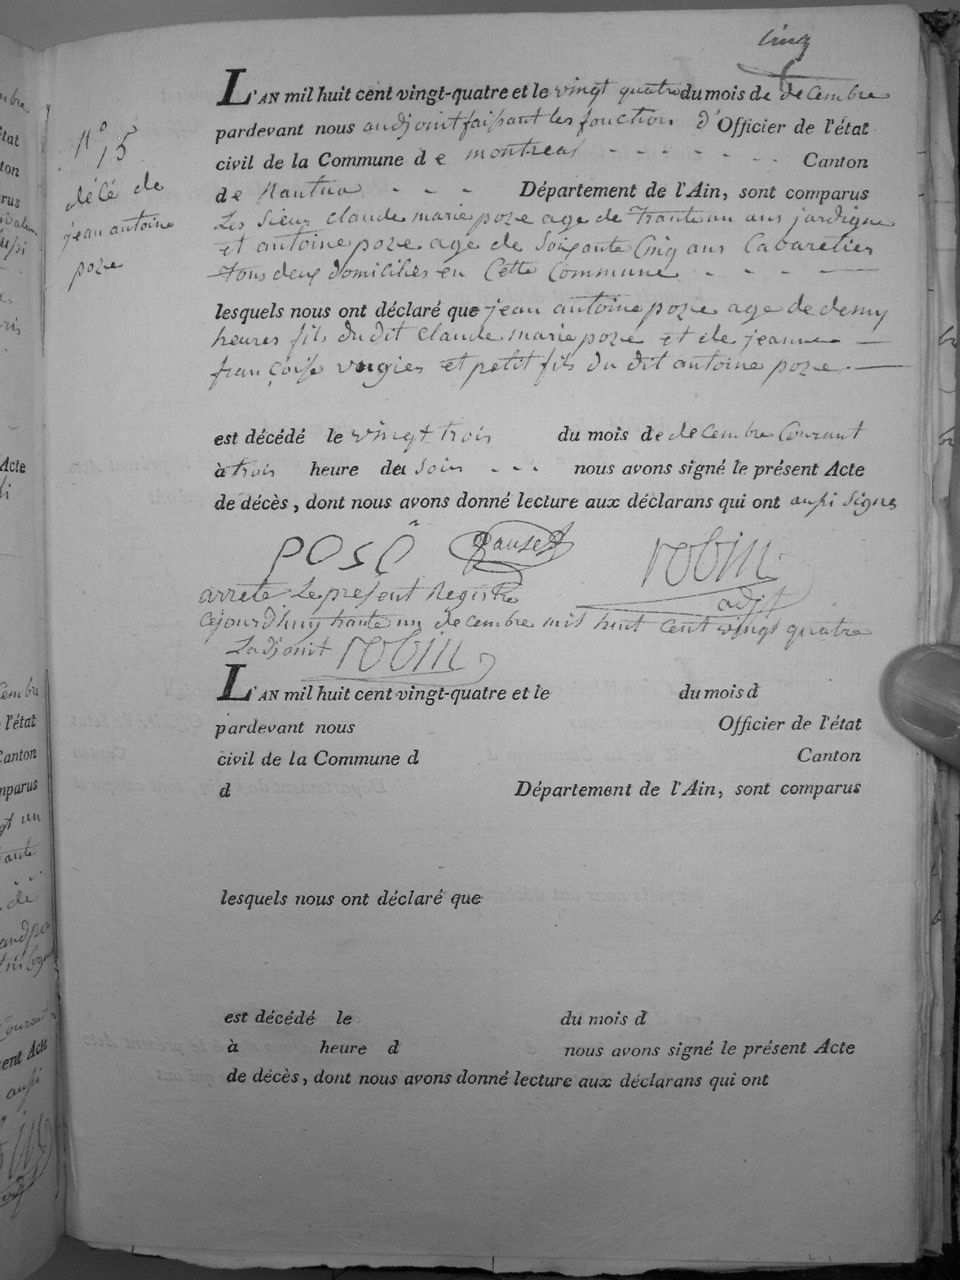 Cinq
N° 15
décé de
jean antoine
poze
L'AN mil huit cent vingt-quatre et le vingt quatre du mois de decembre
pardevant nous audjoint faissant les fonction d'Officier de l'état
civil de la Commune de montreal Canton
de Nantua Département de l'Ain, sont comparus
Les Sieur claude marie poze age de Trante un ans jardigne
et antoine poze age de Soixante Cinq ans Cabaretier
tous deux domiciliés en Cette Commune
lesquels nous ont déclaré que jean antoine poze age de demy
heures fils du dit claude marie poze et de jeanne
françoise et petit fils du dit antoine poze
est décédé le vingt trois du mois de decembre Courant
à trois heure de Soir nous avons signé le présent Acte
de décès, dont nous avons donné lecture aux déclarans qui ont aussi signe
POSE robin
adjt
arrete Le present Registre
cejourdhuy trante un decembre mil huit cent vingt quatre
Ladjoint robin
L'AN mil huit cent vingt-quatre et le du mois d
pardevant nous Officier de l'état
civil de la Commune d Canton
d Département de l'Ain, sont comparus
lesquels nous ont déclaré que
est décédé le du mois d
à heure d nous avons signé le présent Acte
de décès, dont nous avons donné lecture aux déclarans qui ont